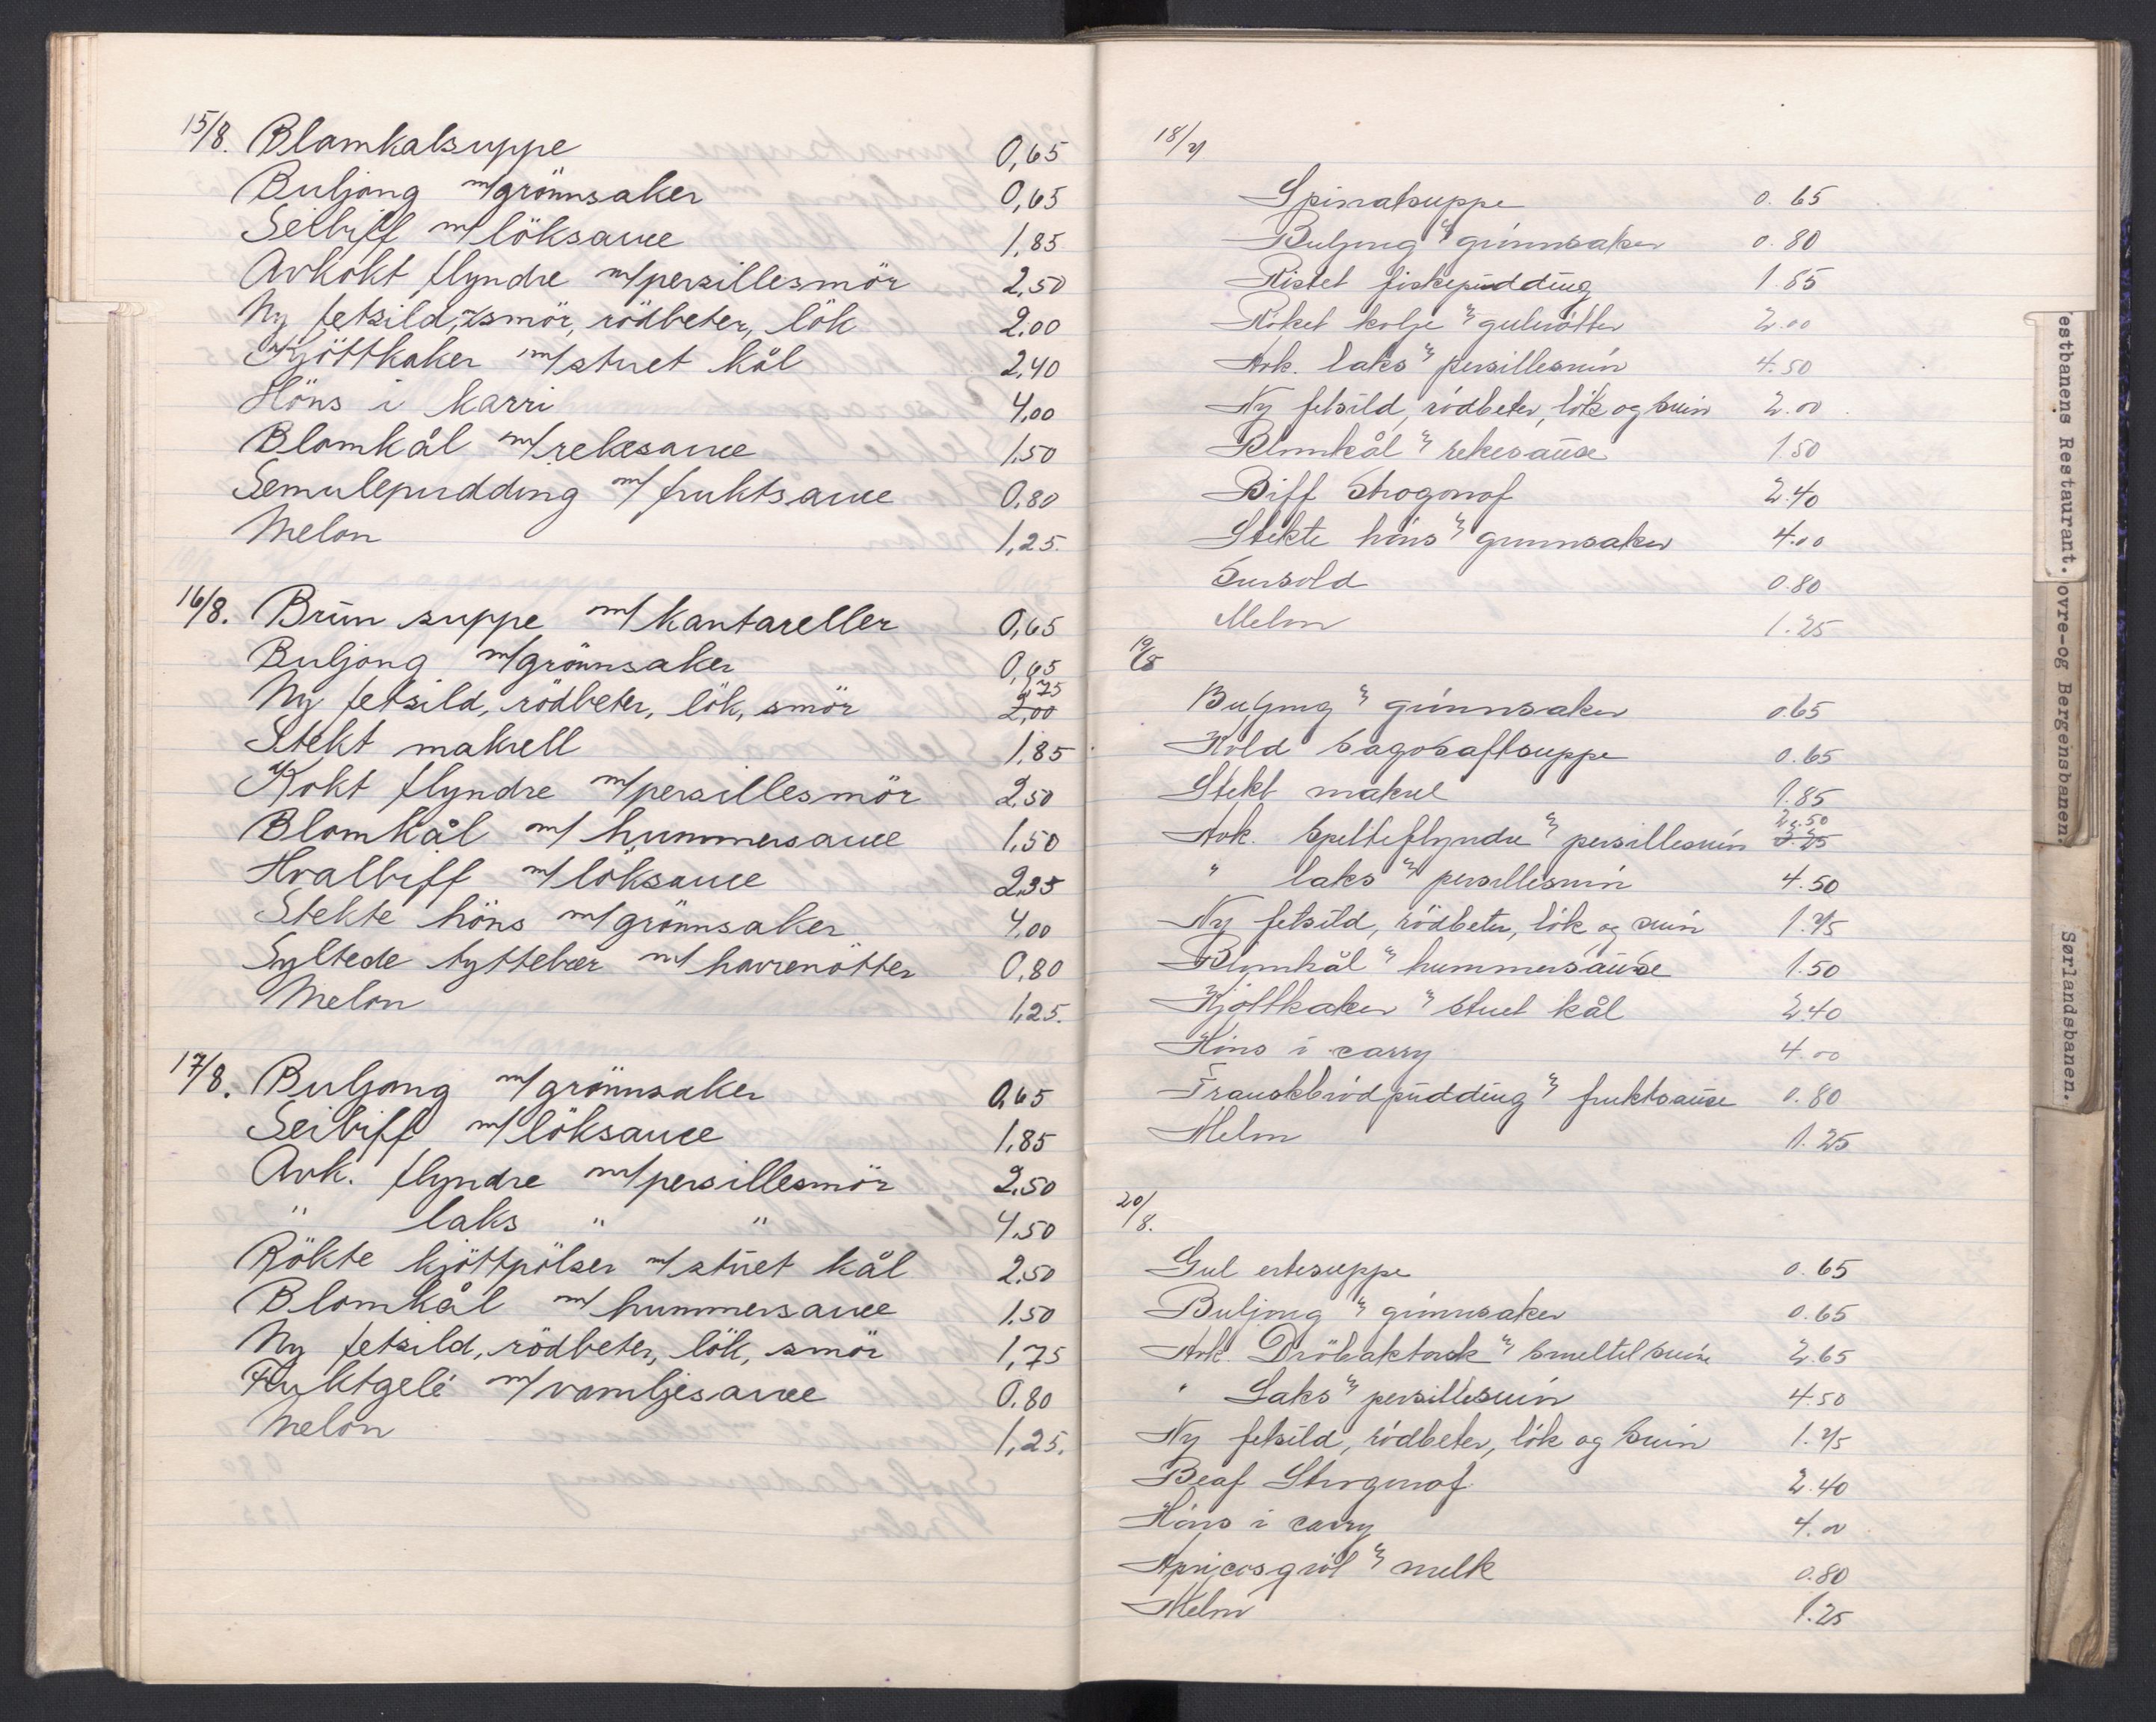 15/8. Blamkalsuppe 0,65
Buljong m/grönnsaker 0,65
Seibiff m/löksauce 1,85
Avkokt flyndre m/persillesmör 2,50
Ny fetsild, smör, rödbeter, lök 2.00
Kjöttkaker m/stuet kål 2,40
Höns i karri 4,00
Blomkål m/rekesauce 1,50
Semulepudding m/fruktsauce 0,80
Melon 1,25.
16/8. Brun suppe m/kantareller 0,65
Buljong m/grönnsaker 0,65
Ny fetsild, rödbeter, lök, smör 2,00 1,75
Stekt makrell 1,85
Kokt flyndre m/persillesmör 2,50
Blomkål m/hummersauce 1,50
Hvalbiff m/löksauce 2,35
Stekte höns m/grönnsaker 4,00
Syltede tyttebær m/havrenötter 0,80
Melon 1,25.
17/8. Buljong m/grönnsaker 0,65
Seibiff m/löksauce 1,85
Avk. flyndre m/persillesmör 2,50
" laks " " 4,50
Rökte kjöttpölser m/stuet kål 2,50
Blomkål m/hummersauce 1,50
Ny fetsild, rödbeter, lök, smör 1,75
Fruktgelé m/vaniljesauce 0,80
Melon 1,25.
18/8
Spinatsuppe 0.65
Buljong m/ grönnsaker 0.80
Ristet fiskepudding 1.85
Röket kolje m/ gulerötter 2.00
Avk. laks m/ persillesmör 4.50
Ny fetsild, rödbeter, lök og smör 2.00
Blomkål m/ rekesause 1.50
Biff Strogonof 2.40
Stekte höns m/ grønnsaker 4.00
Sursold 0.80
Melon 1.25
19/8
Buljong m/ grönnsaker 0.65
Kold sagosaftsuppe 0.65
Stekt makrel 1.85
Avk. Spelteflyndre m/ persillesmör 2.50
" laks m/ persillesmör 4.50
Ny fetsild, rödbeter, lök og smör 1.75
Blomkål m/ hummersause 1.50
Kjöttkaker m/ stuet kål 2.40
Höns i carry 4.00
Franskbrödpudding m/ fruktsause 0.80
Melon 1.25
20/8.
Gul ertesuppe 0.65
Buljong m/ grönnsaker 0.65
Avk. Dröbaktorsk m/ smeltet smör 2.65
" Laks m/ persillesmör 4.50
Ny fetsild, rödbeter, lök og smör 1.75
Beaf Strogonof 2.40
Höns i carry 4.00
Apricosgröt m/ melk 0.80
Melon 1.25
estbanens Restaurant.
ovre-og Bergensbanen.
Sørlandsbanen.